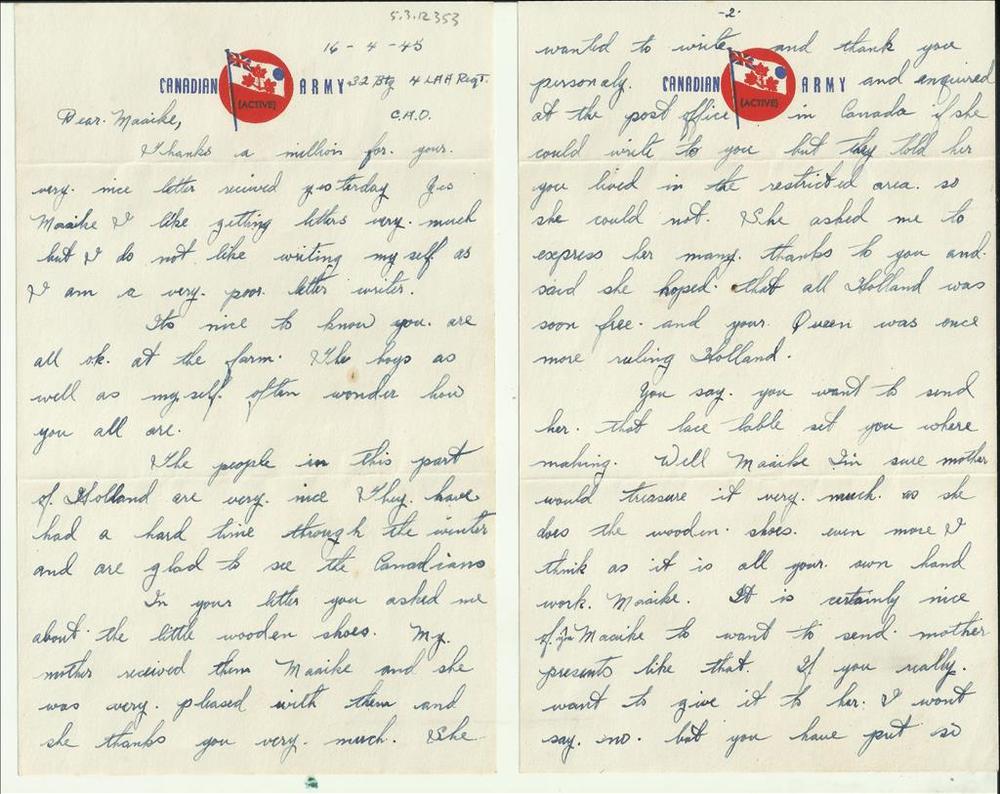 5.3.12353
16 - 4 - 45
CANADIAN ARMY 32 Bty 4 LAA Regt.
(ACTIVE)
Dear. Maaike, C.A.O.
Thanks a million for. your.
very. nice letter recived yesterday Yes
Maaike I like getting letters very. much
but I do not like writing my self as
I am a very. poor. letter writer.
Its nice to know you. are
all ok. at the farm. The boys as
well as my self. often wonder how
you all are.
The people in this part
of. Holland are very. nice They. have
had a hard time through the winter
and are glad to see the Canadians
In your letter you asked me
about the little wooden shoes. My.
mother received them Maaike and she
was very. pleased with them and
she thanks you very. much. She
-2-
wanted to write and thank you
personaly. CANADIAN ARMY and enquired
(ACTIVE)
at the post office in Canada if she
could write to you but they told her
you lived in the restricted area. so
she could not. She asked me to
express her many. thanks to you and.
said she hoped. that all Holland was
soon free. and your. Queen was once
more ruling Holland.
You say. you want to send
her. that lace table set you where
making. Well Maaike I'm sure mother
would treasure it very. much. as she
does the wooden. shoes. even more I
think as it is all your. own hand
work. Maaike. It is certainly nice
of. you Maaike to want to send. mother
presents like that. If you really.
want to give it to her. I wont
say. no. but you have put so